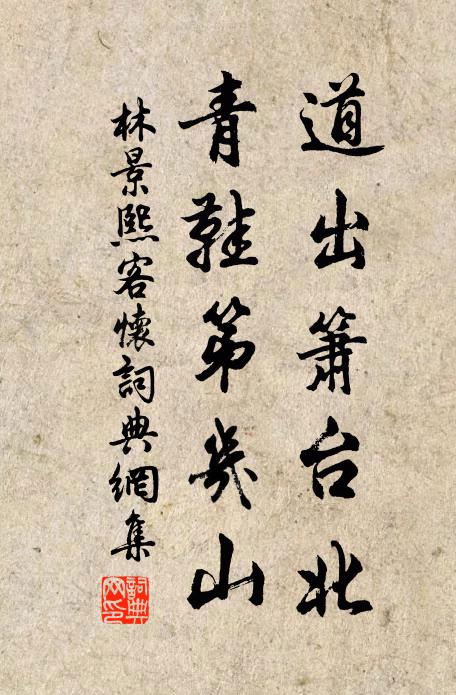 道出箫台北
青鞋第几山
林景熙客懷詞典網集
詞典网印